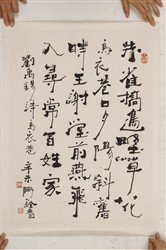 朱雀橋邊野草花
烏衣巷口夕陽斜舊
時王謝堂前燕飛
入尋常百姓家
劉禹錫詩烏衣巷 辛未